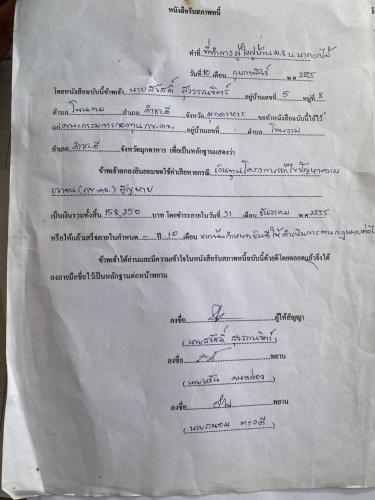 หนังสือรับสภาพหนี้
ทำที่ ที่ทำการผู้ใหญ่บ้าน ม.8 บ.นาดอกไม้
วันที่ 10 เดือน กุมภาพันธ์ พ.ศ 2555
โดยหนังสือฉบับนี้ข้าพเจ้า นายสวัสดิ์ สุวรรณจักร์ อยู่บ้านเลขที่ 5 หมู่ที่ 8
ตำบล โพนงาม อำเภอ คำชะอี จังหวัด มุกดาหาร ขอทำหนังสือนี้ให้ไว้
แก่ คณะกรรมการกองทุน กข.คจ. อยู่บ้านเลขที่ - ตำบล โพนงาม
อำเภอ คำชะอี จังหวัดมุกดาหาร เพื่อเป็นหลักฐานแสดงว่า
ข้าพเจ้าตกลงยินยอมชดใช้ค่าเสียหายกรณี เงินทุนโครงการแก้ไขปัญหาความ
ยากจน (กข.คจ.) สูญหาย
เป็นเงินรวมทั้งสิ้น 158,250 บาท โดยชำระภายในวันที่ 31 เดือน ธันวาคม พ.ศ 2555
หรือให้แล้วเสร็จภายในกำหนด - ปี 10 เดือน หากพ้นกำหนด ยินดีให้ดำเนินการตามกฎหมายต่อไป
ข้าพเจ้าได้อ่านและมีความเข้าใจในหนังสือรับสภาพหนี้ฉบับนี้ด้วยดีโดยตลอดแล้วจึงได้
ลงลายมือชื่อไว้เป็นหลักฐานต่อหน้าพยาน
ลงชื่อ ผู้ให้สัญญา
(นายสวัสดิ์ สุวรรณจักร์)
ลงชื่อ พยาน
ลงชื่อ พยาน
(นายถนอม ตรงดี)